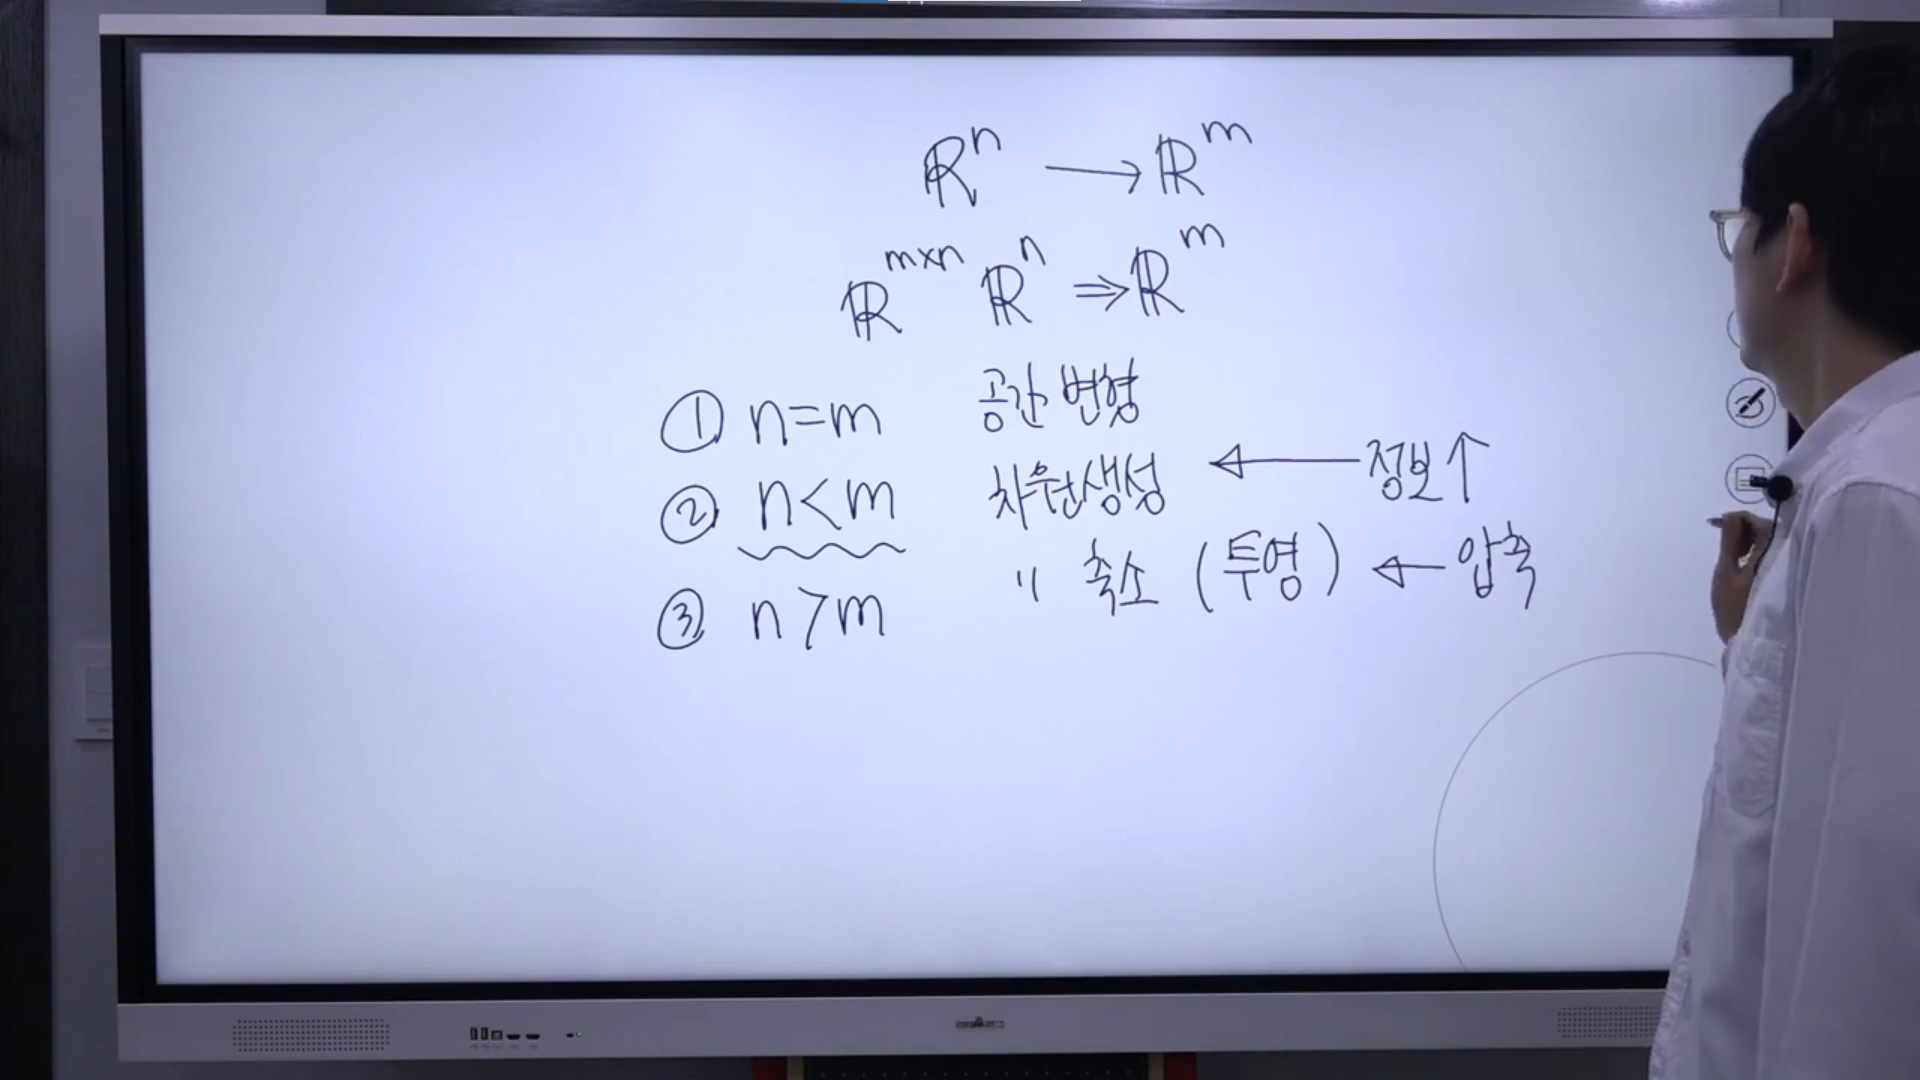 ℝⁿ → ℝᵐ
ℝᵐˣⁿ ℝⁿ ⇒ ℝᵐ
① n=m 공간 변형
② n<m 차원생성 ← 정보↑
③ n>m 〃 축소 (투영) ← 압축